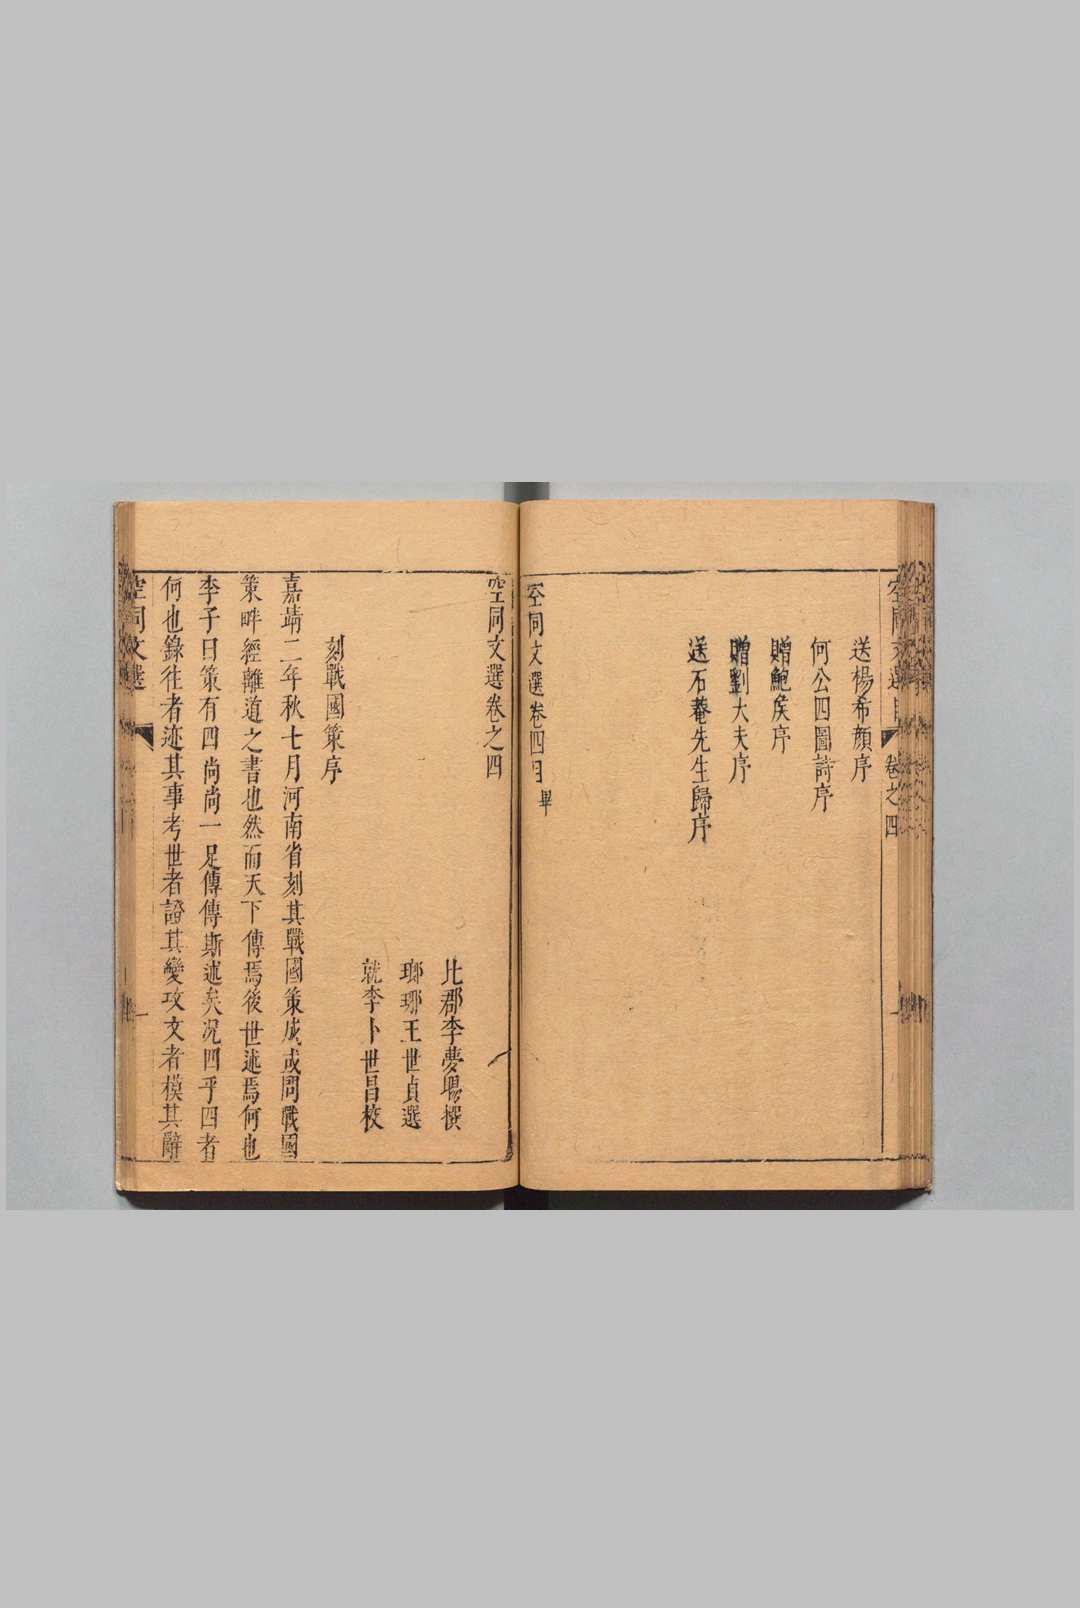 空同文選目 卷之四
送楊希顏序
何公四圖詩序
贈鮑侯序
贈劉大夫序
送石菴先生歸序
空同文選卷四目 畢
空同文選卷之四
北郡李夢陽撰
瑯琊王世貞選
就李卜世昌校
刻戰國策序
嘉靖二年秋七月河南省刻其戰國策成或問戰國
策畔經離道之書也然而天下傳焉後世述焉何也
李子曰策有四尚尚一足傳傳斯述矣况四乎四者
何也錄往者迹其事考世者證其變攻文者模其辭
空同文選